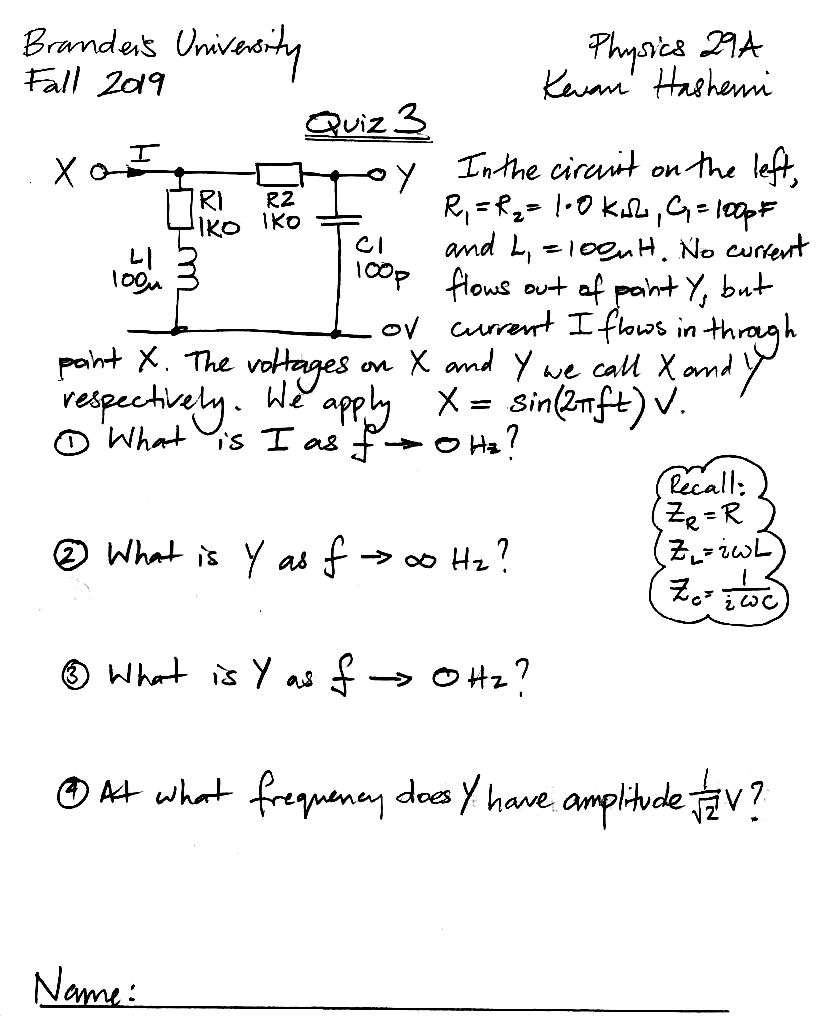 Brandeis University
Fall 2019
Physics 29A
Kevan Hashemi
Quiz 3
X
I
R1
1K0
L1
100u
R2
1K0
Y
C1
100p
0V
In the circuit on the left,
R₁ = R₂ = 1.0 kΩ, C₁ = 100pF
and L₁ = 100uH. No current
flows out of point Y, but
current I flows in through
point X. The voltages on X and Y we call X and Y
respectively. We apply X = sin(2πft) V.
① What is I as f → 0 Hz?
Recall:
Z_R = R
Z_L = iωL
Z_C = 1/iωC
② What is Y as f → ∞ Hz?
③ What is Y as f → 0 Hz?
④ At what frequency does Y have amplitude 1/√2 V?
Name: